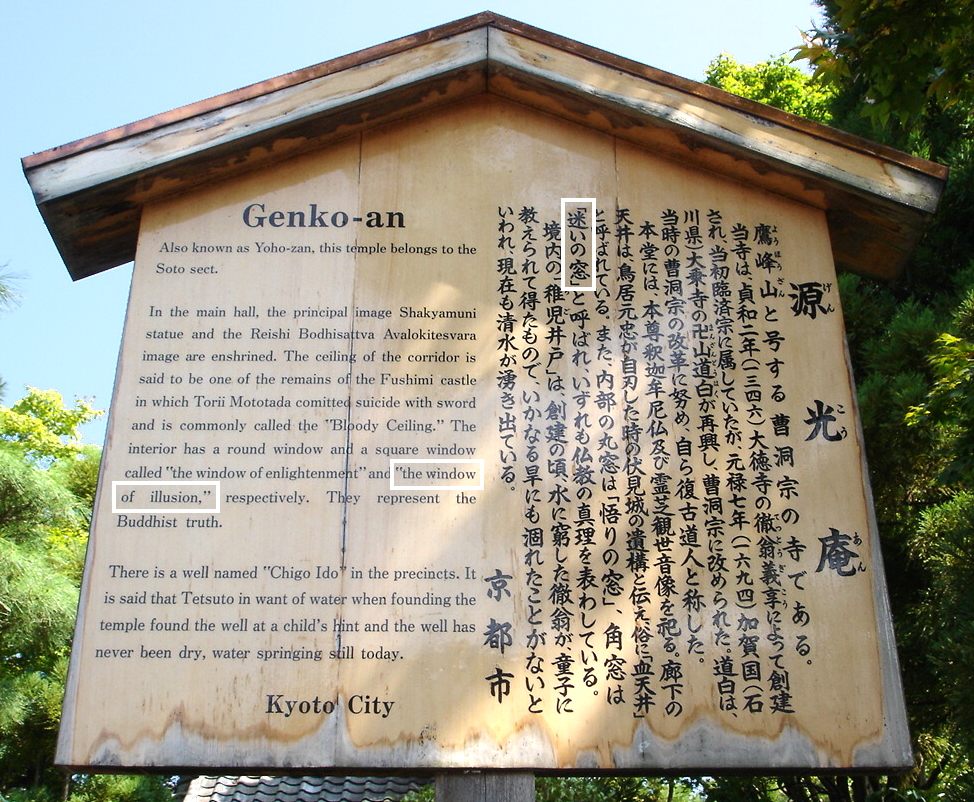 源光庵
げんこうあん
鷹峰山と号する曹洞宗の寺である。
ようほうざん
当寺は、貞和二年(一三四六)大徳寺の徹翁義享によって創建
され、当初臨済宗に属していたが、元禄七年(一六九四)加賀国(石
川県)大乗寺の卍山道白が再興し、曹洞宗に改められた。道白は、
当時の曹洞宗の改革に努め、自ら復古道人と称した。
本堂には、本尊釈迦牟尼仏及び霊芝観世音像を祀る。廊下の
天井は、鳥居元忠が自刃した時の伏見城の遺構と伝え、俗に「血天井」
と呼ばれている。また、内部の丸窓は「悟りの窓」、角窓は
「迷いの窓」と呼ばれ、いずれも仏教の真理を表わしている。
境内の「稚児井戸」は、創建の頃、水に窮した徹翁が、童子に
教えられて得たもので、いかなる旱にも涸れたことがないと
いわれ、現在も清水が湧き出ている。
京都市
Genko-an
Also known as Yoho-zan, this temple belongs to the
Soto sect.
In the main hall, the principal image Shakyamuni
statue and the Reishi Bodhisattva Avalokitesvara
image are enshrined. The ceiling of the corridor is
said to be one of the remains of the Fushimi castle
in which Torii Mototada comitted suicide with sword
and is commonly called the "Bloody Ceiling." The
interior has a round window and a square window
called "the window of enlightenment" and "the window
of illusion," respectively. They represent the
Buddhist truth.
There is a well named "Chigo Ido" in the precincts. It
is said that Tetsuto in want of water when founding the
temple found the well at a child's hint and the well has
never been dry, water springing still today.
Kyoto City